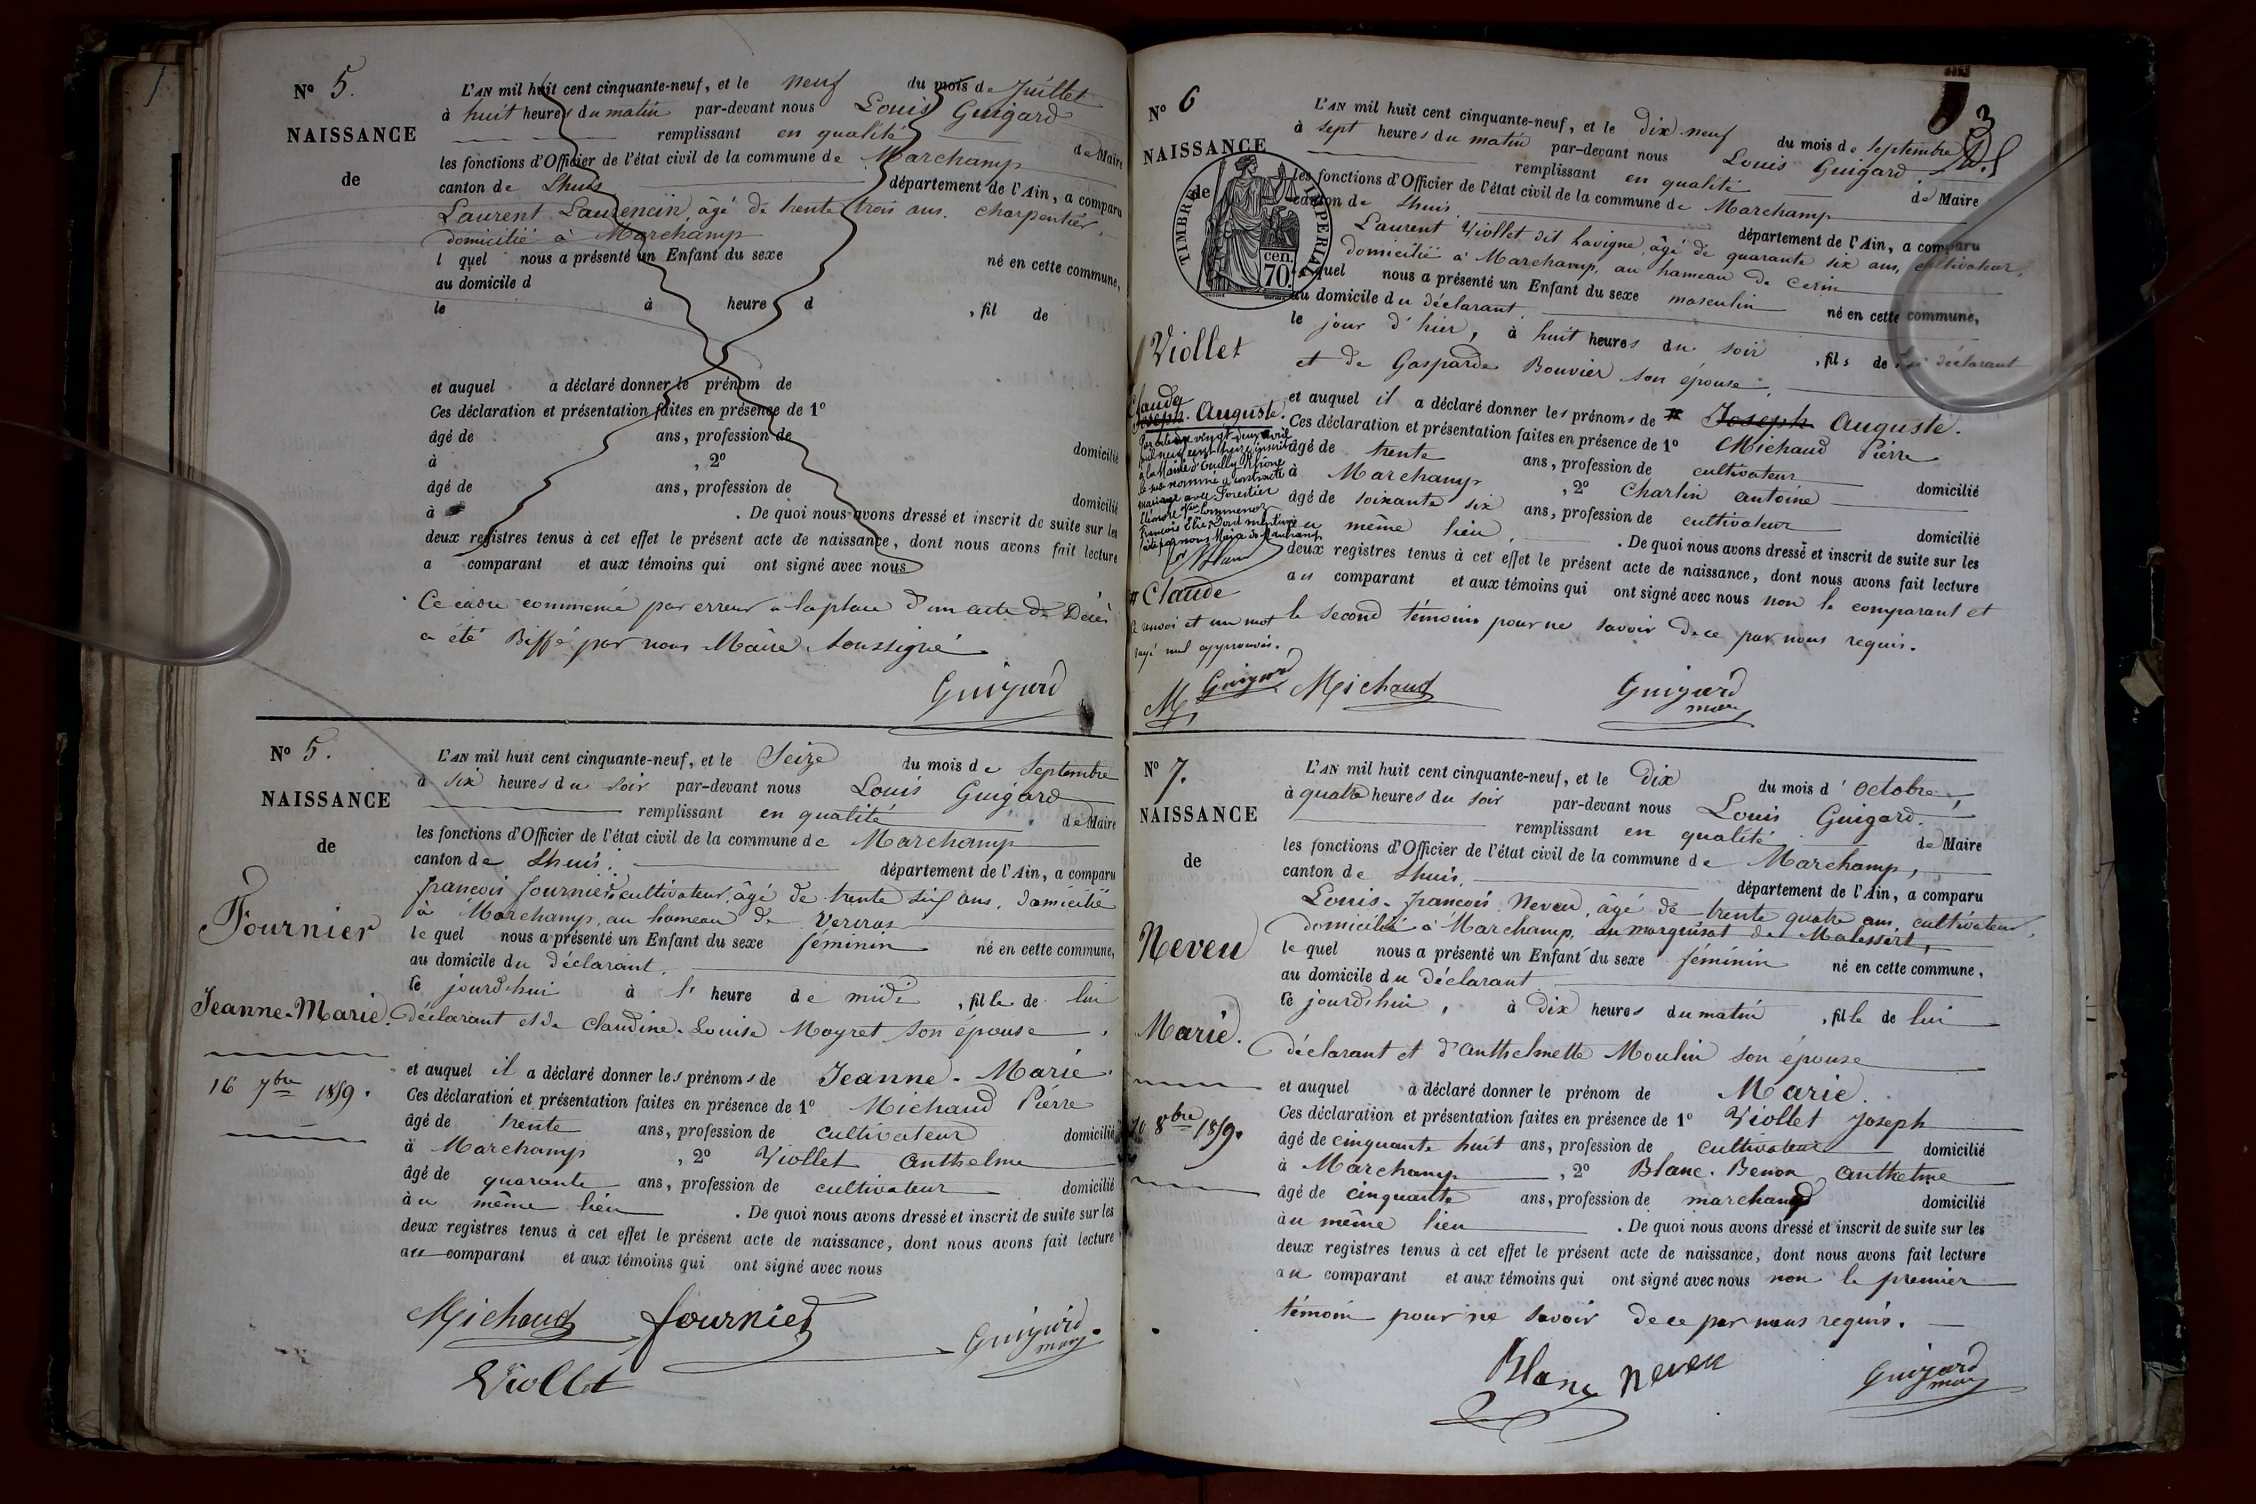 N° 5.
NAISSANCE
de
L'AN mil huit cent cinquante-neuf, et le neuf du mois de Juillet
à huit heures du matin par-devant nous Louis Guigard
remplissant en qualité de Maire
les fonctions d'Officier de l'état civil de la commune de Marchamp
canton de Lhuis département de l'Ain, a comparu
Laurent Laurencin, âgé de trente trois ans. charpentier,
domicilié à Marchamp
l quel nous a présenté un Enfant du sexe né en cette commune,
au domicile d
le à heure d , fil de
et auquel a déclaré donner le prénom de
Ces déclaration et présentation faites en présence de 1°
âgé de ans, profession de domicilié
à , 2°
âgé de ans, profession de domicilié
à . De quoi nous avons dressé et inscrit de suite sur les
deux registres tenus à cet effet le présent acte de naissance, dont nous avons fait lecture
a comparant et aux témoins qui ont signé avec nous
Ce cadre commencé par erreur à la place d'un acte de Décès
a été Biffé par nous Maire soussigné
Guigard
N° 5.
NAISSANCE
de
Fournier
Jeanne-Marie.
16 7bre 1859.
L'AN mil huit cent cinquante-neuf, et le Seize du mois de Septembre
à six heures du soir par-devant nous Louis Guigard
remplissant en qualité de Maire
les fonctions d'Officier de l'état civil de la commune de Marchamp
canton de Lhuis. département de l'Ain, a comparu
françois fournier, cultivateur, âgé de trente six ans, domicilié
à Marchamp, au hameau de
le quel nous a présenté un Enfant du sexe féminin né en cette commune,
au domicile du déclarant.
le jourd'hui à 1r heure de midi , fille de lui
déclarant et de Claudine-Louise Moyret son épouse
et auquel il a déclaré donner les prénoms de Jeanne-Marie.
Ces déclaration et présentation faites en présence de 1° Michaud Pierre
âgé de trente ans, profession de cultivateur domicilié
à Marchamp , 2° Viollet Anthelme
âgé de quarante ans, profession de cultivateur domicilié
à u même lieu . De quoi nous avons dressé et inscrit de suite sur les
deux registres tenus à cet effet le présent acte de naissance, dont nous avons fait lecture
au comparant et aux témoins qui ont signé avec nous
Michaud fournier Guigard
maire
Viollet
3
N° 6
NAISSANCE
de
TIMBRE IMPERIAL
70 cen.
Viollet
Claude
Joseph-Auguste.
# Claude
Le renvoi et un mot
rayé nul approuvés.
L'AN mil huit cent cinquante-neuf, et le dix-neuf du mois de septembre
à sept heures du matin par-devant nous Louis Guigard
remplissant en qualité de Maire
les fonctions d'Officier de l'état civil de la commune de Marchamp
canton de Lhuis. département de l'Ain, a comparu
Laurent Viollet dit Lavigne, âgé de quarante six ans, cultivateur,
domicilié à Marchamp, au hameau de Cerin
le quel nous a présenté un Enfant du sexe masculin né en cette commune,
au domicile du déclarant.
le jour d'hier, à huit heures du soir , fils de lui déclarant
et de Gasparde Bouvier son épouse.
et auquel il a déclaré donner les prénoms de # Joseph Auguste.
Ces déclaration et présentation faites en présence de 1° Michaud Pierre
âgé de trente ans, profession de cultivateur domicilié
à Marchamp , 2° Charlin antoine
âgé de soixante six ans, profession de cultivateur domicilié
au même lieu . De quoi nous avons dressé et inscrit de suite sur les
deux registres tenus à cet effet le présent acte de naissance, dont nous avons fait lecture
au comparant et aux témoins qui ont signé avec nous non le comparant et
le second témoin pour ne savoir de ce par nous requis.
M Guigard Michaud Guigard
maire
N° 7.
NAISSANCE
de
Neveu
Marie.
10 8bre 1859.
L'AN mil huit cent cinquante-neuf, et le dix du mois d'octobre,
à quatre heures du soir par-devant nous Louis Guigard.
remplissant en qualité de Maire
les fonctions d'Officier de l'état civil de la commune de Marchamp,
canton de Lhuis. département de l'Ain, a comparu
Louis-françois Neveu, âgé de trente quatre ans, cultivateur,
domicilié à Marchamp, au marquisat de
le quel nous a présenté un Enfant du sexe féminin né en cette commune,
au domicile du déclarant
le jourd'hui, à dix heures du matin , fille de lui
déclarant et d'anthelmette Moulin son épouse
et auquel a déclaré donner le prénom de Marie.
Ces déclaration et présentation faites en présence de 1° Viollet Joseph
âgé de cinquante huit ans, profession de cultivateur domicilié
à Marchamp , 2° Blanc-Benon, anthelme
âgé de cinquante ans, profession de marchand domicilié
au même lieu . De quoi nous avons dressé et inscrit de suite sur les
deux registres tenus à cet effet le présent acte de naissance, dont nous avons fait lecture
au comparant et aux témoins qui ont signé avec nous non le premier
témoin pour ne savoir de ce par nous requis.
Blanc neveu Guigard
maire